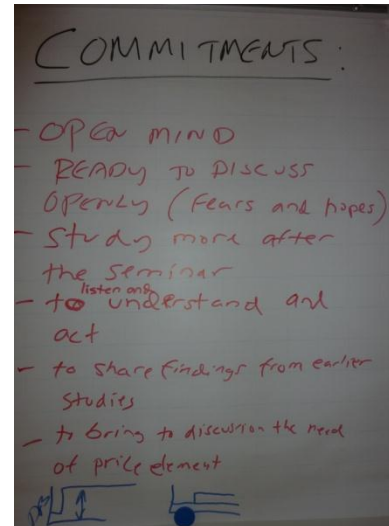 COMMITMENTS:
- OPEN MIND
- READY TO DISCUSS
OPENLY (Fears and hopes)
- Study more after
the seminar
listen and
- to understand and
act
- to share findings from earlier
studies
- to bring to discussion the need
of price element